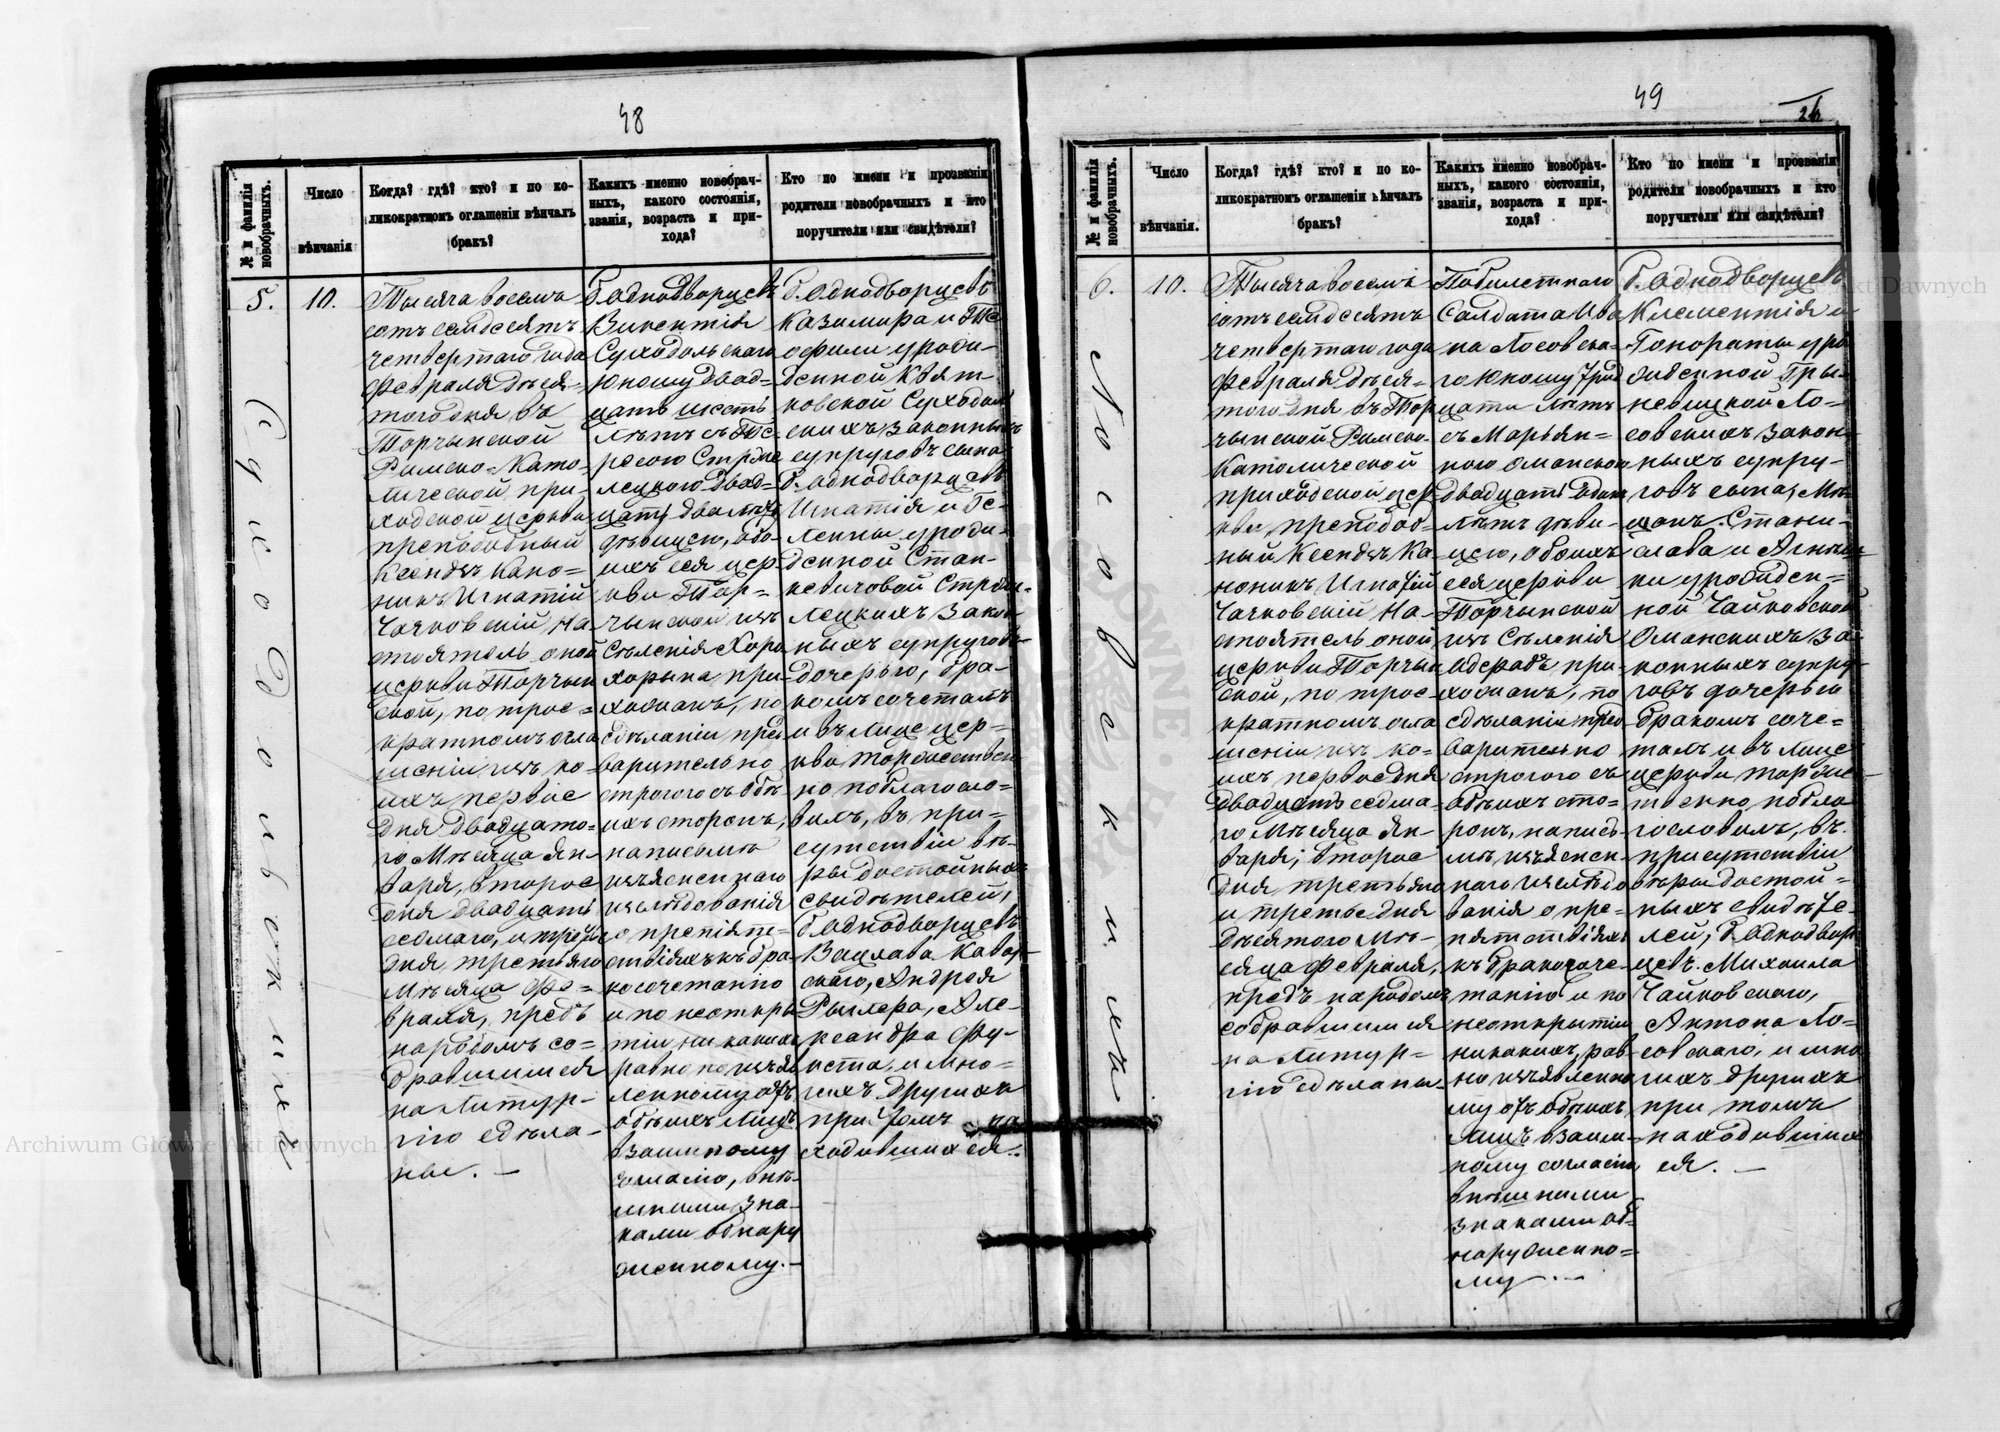 48
№ и фамилія новобрачныхъ.
Число вѣнчанія
Когда? гдѣ? кто? и по коликократномъ оглашеніи вѣнчалъ бракъ?
Какихъ именно новобрачныхъ, какого состоянія, званія, возраста и прихода?
Кто по имени и прозванію родители новобрачныхъ и кто поручители или свидѣтели?
5.
10.
Тысяча восемь
сотъ семдесятъ
четвертаго года
Февраля десятаго дня въ
Торчынской
Римско-Като-
лической при-
ходской церкви
преподобный
Ксендзъ Кано-
никъ Игнатій
Чачковскій На-
стоятель оной
церкви Торчын
ской, по трое-
кратномъ огла
шеніи изъ ко-
ихъ первое
дня двадцато-
го Мѣсяца Ян-
варя, второе
дня двадцать
седмаго, и третье
дня третьяго
Мѣсяца Фе-
враля, предъ
народомъ со-
бравшимся
на Литур-
гію сдѣла-
ны. —
б. Однодворцевъ
Викентія
Суходольскаго
юношу двад-
цать шесть
лѣтъ съ Те-
ресою Стрже
лецкою двад-
цать два лѣтъ
дѣвицею, обо-
ихъ сея цер
кви Тор-
чынской изъ
Селенія Хоро
хорына при-
хожанъ, по
сдѣланіи пред
варительно
строгого съ обѣ-
ихъ сторонъ,
на письмѣ
изъясненнаго
изслѣдованія
о препятс-
ствіяхъ къ бра-
косочетанію
и по неоткры
тіи никакихъ
равно по изъяв
ленному отъ
обѣихъ лицъ
взаимному
согласію, внѣ-
шними зна-
ками обнару
женному. —
б. Однодворцевъ
Казимира и Те-
офили урож-
денной Квят-
ковской Суходоль
скихъ законныхъ
супруговъ сына
б. однодворцевъ
Игнатія и Ге-
лены урож-
денной Стан-
кевичовой Стрже-
лецкихъ закон
ныхъ супруговъ
дочерью, бра-
комъ сочеталъ
и въ лице цер-
кви торжествен
но поблагосло-
вилъ, въ при-
сутствіи вѣ-
ры достойныхъ
свидѣтелей,
б. однодворцевъ
Вацлава Кавер
скаго, Андрея
Рылера, Але-
ксандра Фу-
иста, и мно-
гихъ другихъ
при томъ на
ходившихся.
Суходольскихъ
49
26
№ и фамилія новобрачныхъ.
Число вѣнчанія.
Когда? гдѣ? кто? и по коликократномъ оглашеніи вѣнчалъ бракъ?
Какихъ именно новобрачныхъ, какого состоянія, званія, возраста и прихода?
Кто по имени и прозванію родители новобрачныхъ и кто поручители или свидѣтели?
6.
10.
Тысяча восемь
сотъ семдесятъ
четвертаго года
Февраля деся-
таго дня въ Тор
чынской Римско-
Католической
приходской цер
кви, преподоб-
ный Ксендзъ Ка-
ноникъ Игнатій
Чачковскій На-
стоятель оной
церкви Торчын
ской, по трое-
кратномъ огла
шеніи изъ ко-
ихъ первое дня
двадцать седма-
го Мѣсяца Ян-
варя; второе
дня третьяго
и третье дня
десятого Мѣ-
сяца Февраля,
предъ народомъ
собравшимся
на Литур-
гію сдѣланы.
Побилетнаго
Солдата Ива
на Лосовска-
го юношу трид
цати лѣтъ
съ Марьян-
ною Оманскою
двадцать одинъ
лѣтъ дѣви-
цею, обоихъ
сея церкви
Торчынской
изъ Селенія
Адерадъ при-
хожанъ, по
сдѣланіи пред
варительно
строгого съ
обѣихъ сто-
ронъ, на пись-
мѣ изъяснен-
наго изслѣдо
ванія о пре-
пятствіяхъ
къ бракосоче-
танію и по
неоткрытіи
никакихъ, рав-
но изъявленно
му отъ обѣихъ
лицъ взаим-
ному согласію,
внѣшними
знаками об-
наруженно-
му. —
б. Однодворцевъ
Клементія и
Гонораты уро
жденной Гры-
невицкой Ло-
совскихъ закон-
ныхъ супру-
говъ сына, Мѣ-
щанъ. Стани-
слава и Агнѣш
ки урожден-
ной Чайковской
Оманскихъ за-
конныхъ супру-
говъ дочерью
бракомъ соче-
талъ и въ лице
церкви торже-
ственно побла
гословилъ, въ
присутствіи
вѣры достой-
ныхъ свидѣте-
лей, б. Однодвор
цевъ. Михаила
Чайковскаго,
Антона Ло-
совскаго, и мно
гихъ другихъ
при томъ
находившихъ
ся. —
Лосовскихъ
Archiwum Główne Akt Dawnych